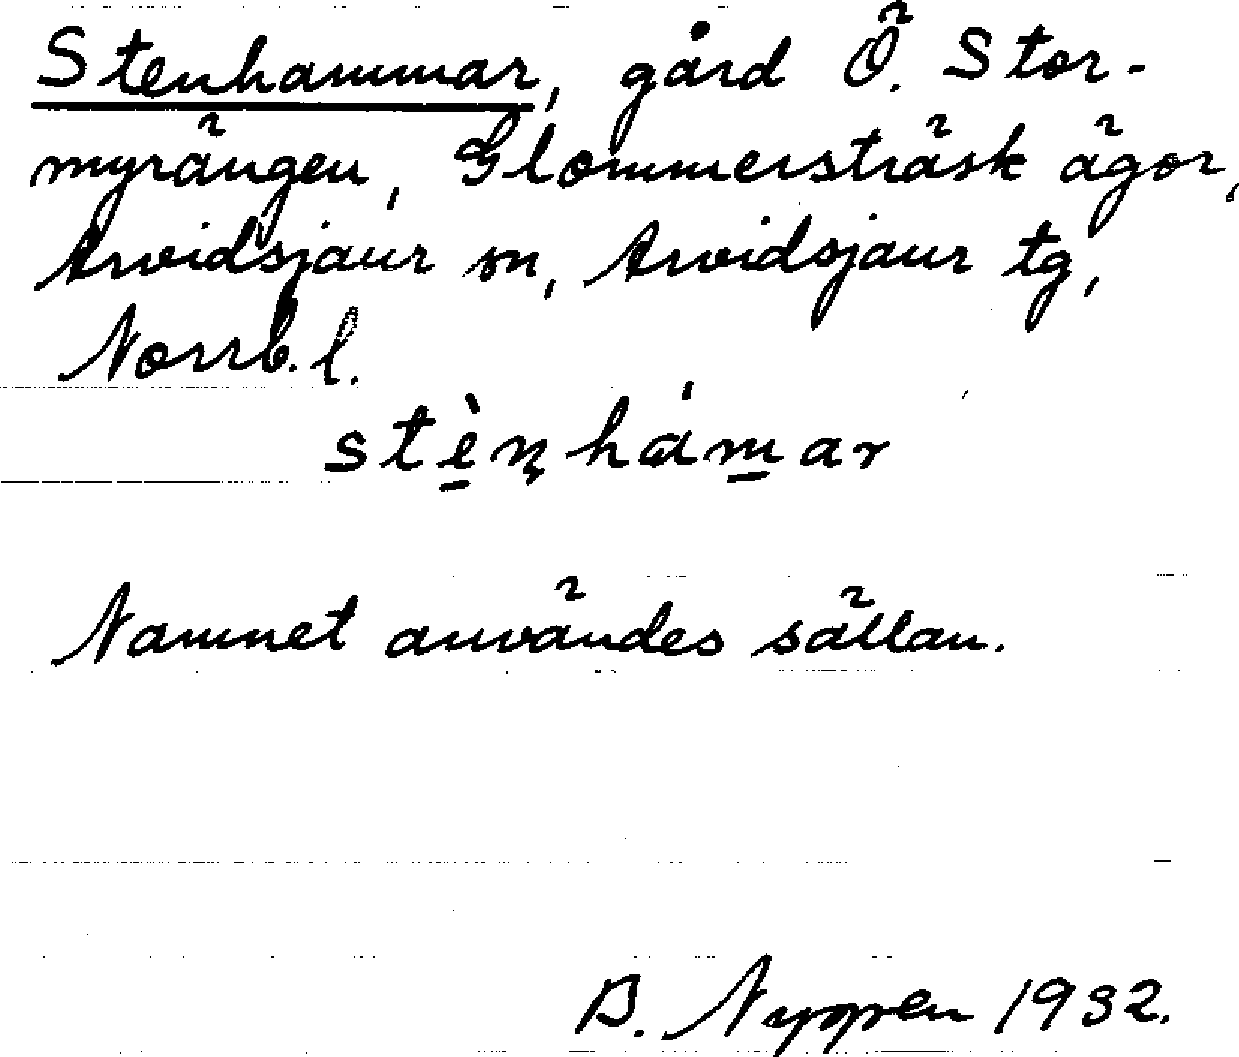 Stenhammar, gård Ö. Stor-
myrängen, Glommersträsk ägor,
Arvidsjaur sn, Arvidsjaur tg,
Norrb. l.
stèn̥hámar
Namnet användes sällan.
B. Nyppen 1932.